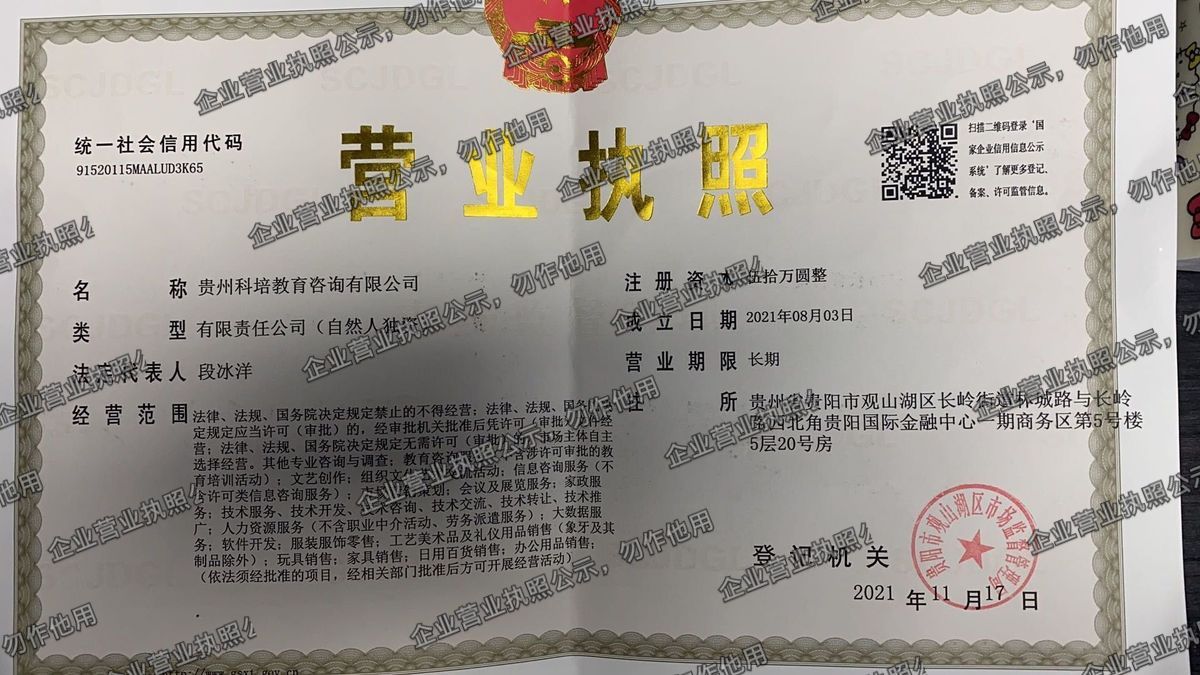 营业执照
统一社会信用代码
91520115MAALUD3K65
扫描二维码登录‘国
家企业信用信息公示
系统’了解更多登记、
备案、许可监管信息。
名称 贵州科培教育咨询有限公司
类型 有限责任公司（自然人独资
法定代表人 段冰洋
经营范围 法律、法规、国务院决定规定禁止的不得经营；法律、法规、国务院决
定规定应当许可（审批）的，经审批机关批准后凭许可（审批）文件经
营；法律、法规、国务院决定规定无需许可（审批）的，市场主体自主
选择经营。其他专业咨询与调查；教育咨询服务（不含涉许可审批的教
育培训活动）；文艺创作；组织文化艺术交流活动；信息咨询服务（不
含许可类信息咨询服务）；策划；会议及展览服务；家政服
务；技术服务、技术开发、技术咨询、技术交流、技术转让、技术推
广；人力资源服务（不含职业中介活动、劳务派遣服务）；大数据服
务；软件开发；服装服饰零售；工艺美术品及礼仪用品销售（象牙及其
制品除外）；玩具销售；家具销售；日用百货销售；办公用品销售；
（依法须经批准的项目，经相关部门批准后方可开展经营活动）
注册资本 伍拾万圆整
成立日期 2021年08月03日
营业期限 长期
住所 贵州省贵阳市观山湖区长岭街道环城路与长岭
路西北角贵阳国际金融中心一期商务区第5号楼
5层20号房
登记机关
贵阳市观山湖区市场监督管理局
2021 年 11 月 17 日
http://www.gsxt.gov.cn
企业营业执照公示，勿作他用